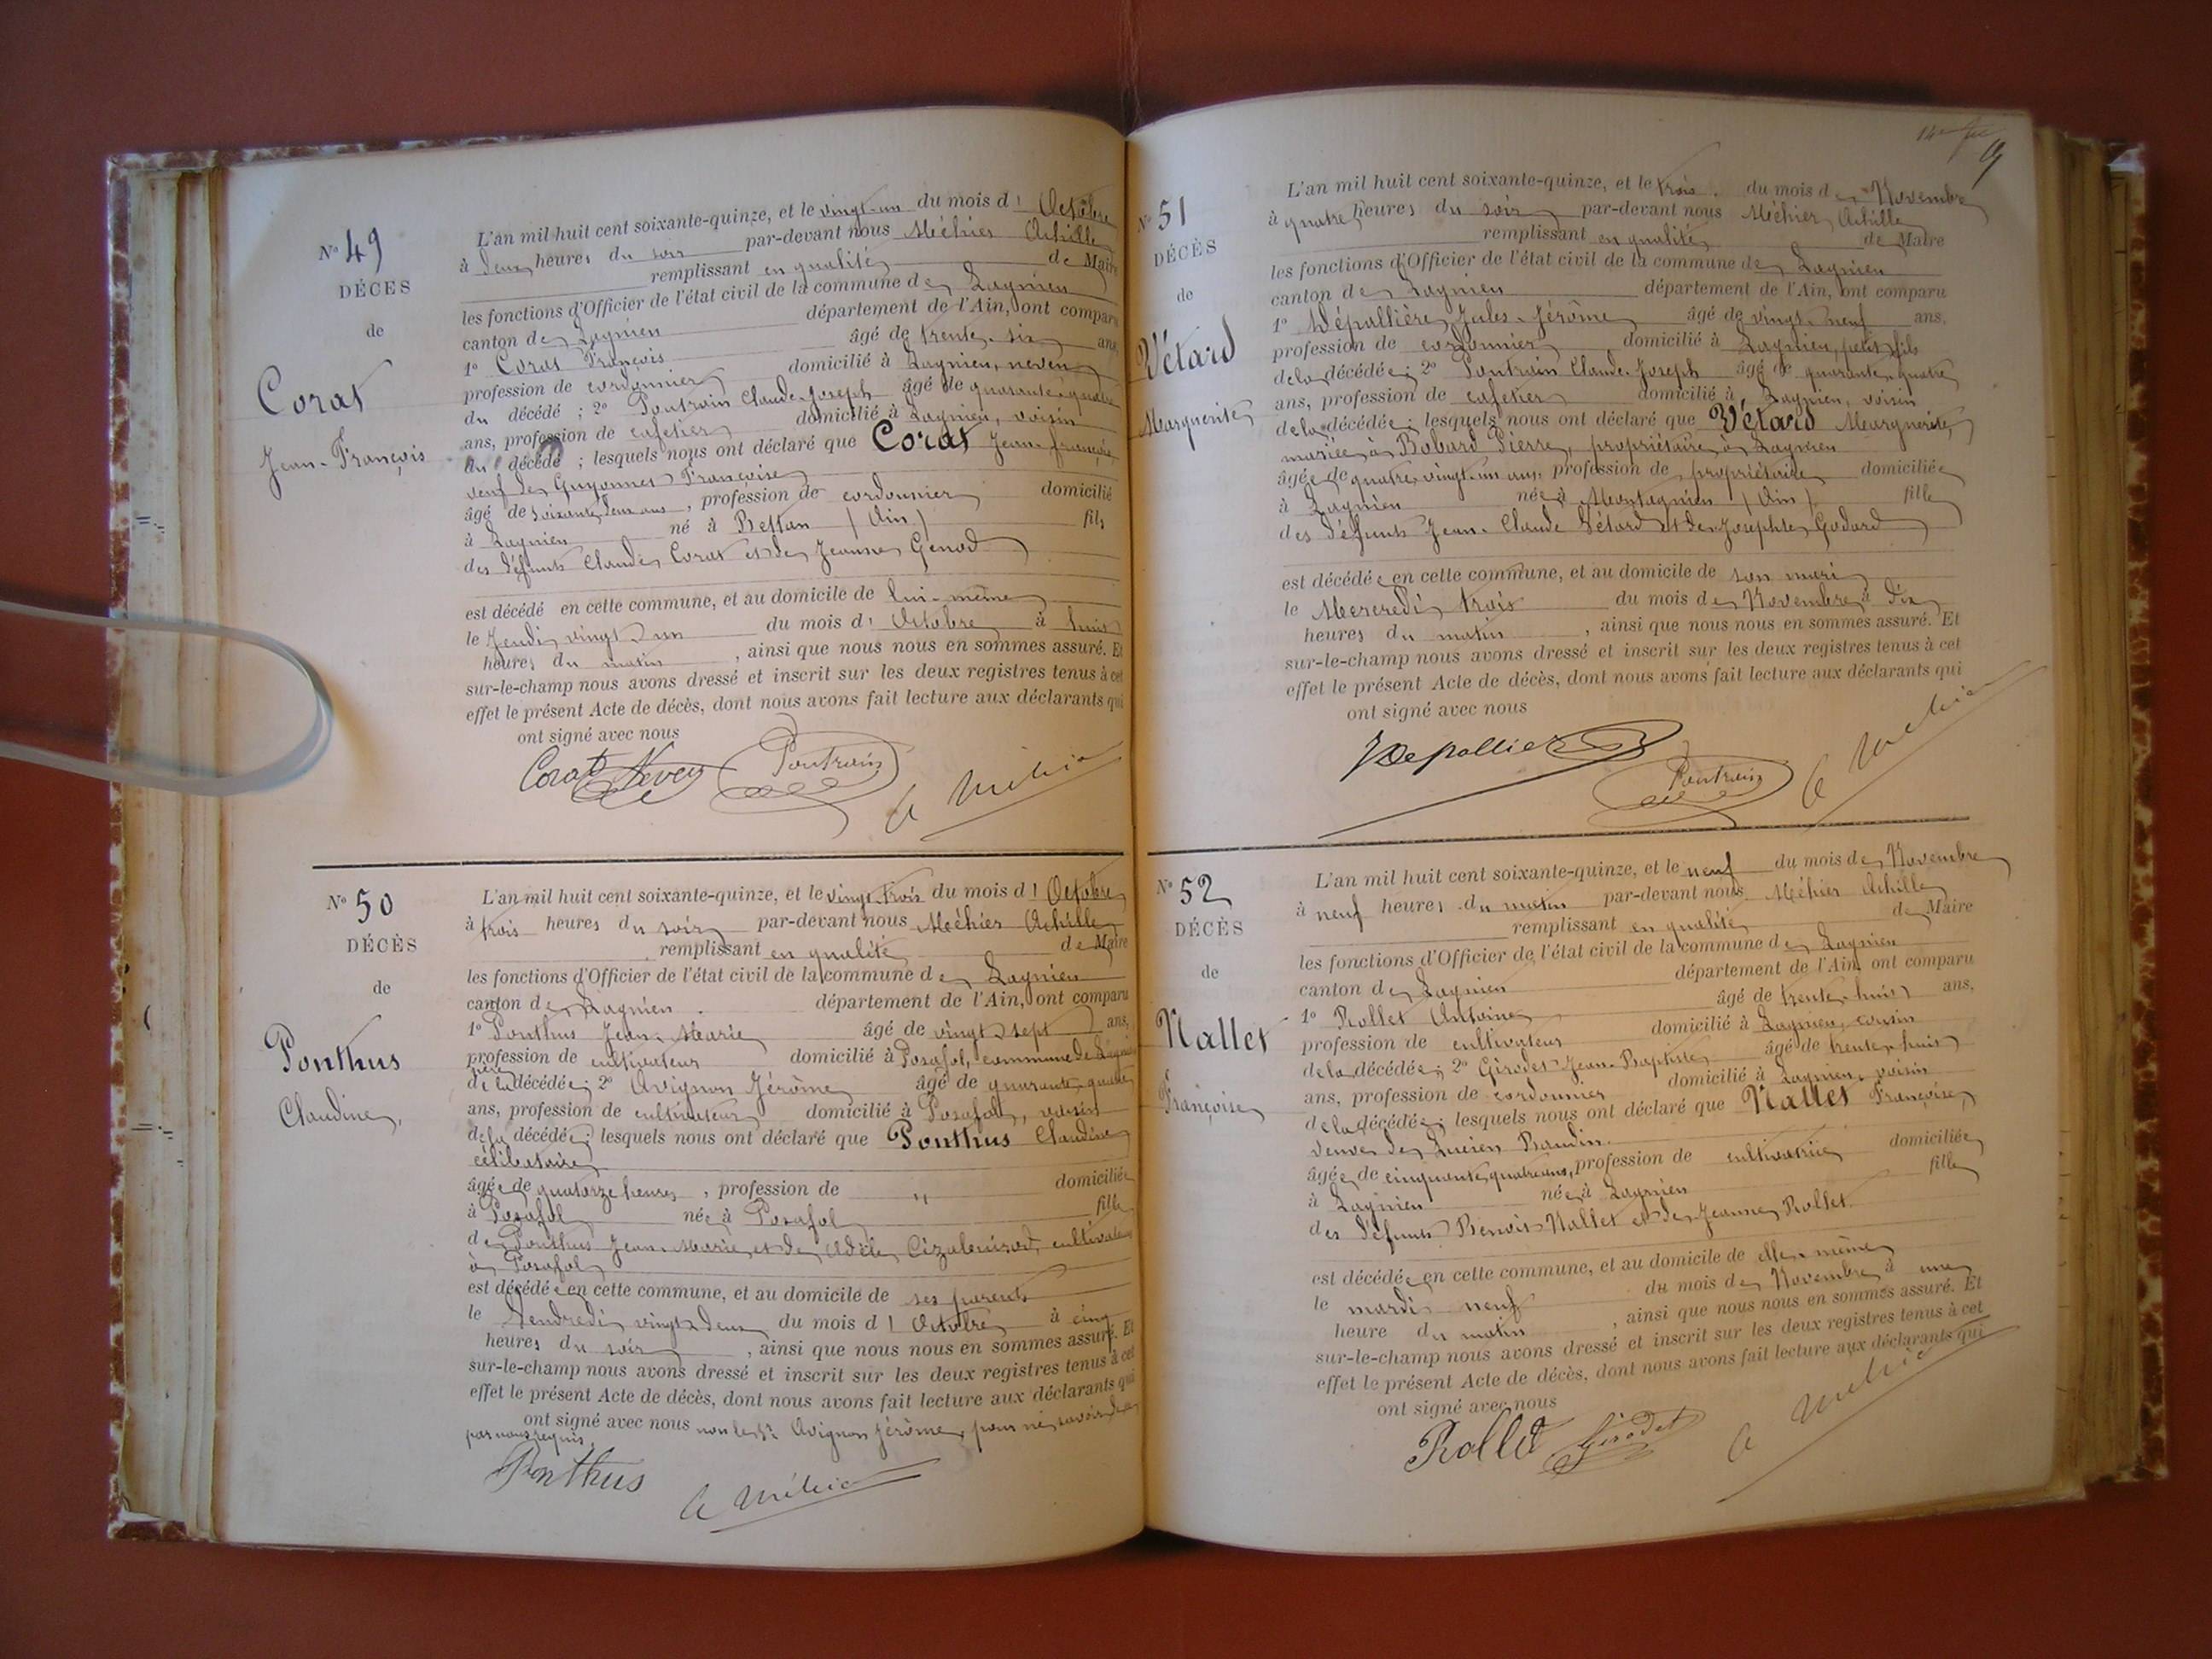 N° 49
DÉCÈS
de
Corat
Jean-François
L'an mil huit cent soixante-quinze, et le vingt-un du mois d'Octobre
à deux heures du soir par-devant nous Méhier Achille
remplissant en qualité de Maire
les fonctions d'Officier de l'état civil de la commune de Lagnieu
canton de Lagnieu département de l'Ain, ont comparu
1° Corat François âgé de trente-six ans,
profession de cordonnier domicilié à Lagnieu, neveu
du décédé ; 2° Poutrain Claude-Joseph âgé de quarante-quatre
ans, profession de cafetier domicilié à Lagnieu, voisin
du décédé ; lesquels nous ont déclaré que Corat Jean-François,
veuf de Guyonnet Françoise
âgé de soixante deux ans, profession de cordonnier domicilié
à Lagnieu né à Bettan (Ain) fils
des défunts Claude Corat et de Jeanne Genod
est décédé en cette commune, et au domicile de lui-même
le Jeudi vingt un du mois d'Octobre à huit
heures du matin, ainsi que nous nous en sommes assuré. Et
sur-le-champ nous avons dressé et inscrit sur les deux registres tenus à cet
effet le présent Acte de décès, dont nous avons fait lecture aux déclarants qui
ont signé avec nous
Corat Neveu Poutrain A Méhier
N° 50
DÉCÈS
de
Ponthus
Claudine,
L'an mil huit cent soixante-quinze, et le vingt-trois du mois d'Octobre
à trois heures du soir par-devant nous Méhier Achille
remplissant en qualité de Maire
les fonctions d'Officier de l'état civil de la commune de Lagnieu
canton de Lagnieu département de l'Ain, ont comparu
1° Ponthus Jean-Marie âgé de vingt sept ans,
profession de cultivateur domicilié à Posafol, commune de Lagnieu
père
de la décédée ; 2° Avignon Jérôme âgé de quarante-quatre
ans, profession de cultivateur domicilié à Posafol, voisin
de la décédée ; lesquels nous ont déclaré que Ponthus Claudine
célibataire
âgée de quatorze heures, profession de " domiciliée
à Posafol née à Posafol fille
de Ponthus Jean-Marie et de Adèle cultivateurs
à Posafol
est décédée en cette commune, et au domicile de ses parents
le Vendredi vingt-deux du mois d'Octobre à cinq
heures du soir, ainsi que nous nous en sommes assuré. Et
sur-le-champ nous avons dressé et inscrit sur les deux registres tenus à cet
effet le présent Acte de décès, dont nous avons fait lecture aux déclarants qui
ont signé avec nous non le Sr Avignon Jérôme, pour ne savoir de ce
par nous requis.
Ponthus A Méhier
9
N° 51
DÉCÈS
de
Vétard
Marguerite
L'an mil huit cent soixante-quinze, et le trois du mois de Novembre
à quatre heures du soir par-devant nous Méhier Achille
remplissant en qualité de Maire
les fonctions d'Officier de l'état civil de la commune de Lagnieu
canton de Lagnieu département de l'Ain, ont comparu
1° Dépallière Jules-Jérôme âgé de vingt-neuf ans,
profession de cordonnier domicilié à Lagnieu, petit fils
de la décédée ; 2° Poutrain Claude-Joseph âgé de quarante-quatre
ans, profession de cafetier domicilié à Lagnieu, voisin
de la décédée ; lesquels nous ont déclaré que Vétard Marguerite,
mariée à Bobard Pierre, propriétaire à Lagnieu
âgée de quatre-vingt-un ans, profession de propriétaire domiciliée
à Lagnieu née à Montagnieu (Ain) fille
des défunts Jean-Claude Vétard et de Josephte Godard
est décédée en cette commune, et au domicile de son mari
le Mercredi trois du mois de Novembre à dix
heures du matin, ainsi que nous nous en sommes assuré. Et
sur-le-champ nous avons dressé et inscrit sur les deux registres tenus à cet
effet le présent Acte de décès, dont nous avons fait lecture aux déclarants qui
ont signé avec nous
Poutrain A Méhier
N° 52
DÉCÈS
de
Nallet
Françoise
L'an mil huit cent soixante-quinze, et le neuf du mois de Novembre
à neuf heures du matin par-devant nous Méhier Achille
remplissant en qualité de Maire
les fonctions d'Officier de l'état civil de la commune de Lagnieu
canton de Lagnieu département de l'Ain, ont comparu
1° Rollet Antoine âgé de trente-huit ans,
profession de cultivateur domicilié à Lagnieu, cousin
de la décédée ; 2° Girodet Jean-Baptiste âgé de trente-huit
ans, profession de cordonnier domicilié à Lagnieu, voisin
de la décédée ; lesquels nous ont déclaré que Nallet Françoise,
veuve de Lucien Baudin.
âgée de cinquante-quatre ans, profession de cultivatrice domiciliée
à Lagnieu née à Lagnieu fille
des défunts Benoit Nallet et de Jeanne Rollet.
est décédée en cette commune, et au domicile de elle-même
le mardi neuf du mois de Novembre à une
heure du matin, ainsi que nous nous en sommes assuré. Et
sur-le-champ nous avons dressé et inscrit sur les deux registres tenus à cet
effet le présent Acte de décès, dont nous avons fait lecture aux déclarants qui
ont signé avec nous
Rollet Girodet A Méhier